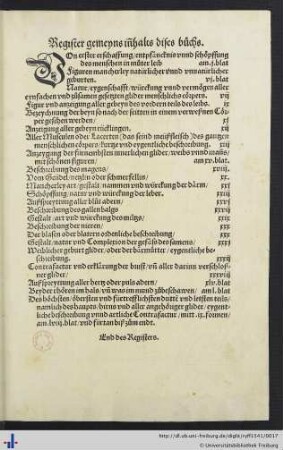 Register gemeyns inhalts dises bůchs.
Von erster erschaffung / entpfäncknis vnnd schöpffung
des menschen in můter leib am .j. blat
Figuren mancherley natürlicher vnnd vnnatürlicher
geburten. vj. blat
Natur / eygenschafft / würckung vnnd vermögen aller
eynfachen vnd zůsamen gesetzten glider menschlichs cörpers. vij
Figur vnd anzeigung aller gebeyn des vordern teils des leibs. ix
Bezeychnung der beyn so nach der seitten in einem verweßnen Cör-
per gesehen werden. xj
Anzeigung aller gebeyn rücklingen. xij
Aller Musculen oder Lacerten / das seind meüßfleisch / des gantzen
menschlichen cörpers / kurtze vnd eygentliche beschreibung. xiij
Anzeygung der jnnersten jnnerlichen glider / weibs vnnd manß /
mit schönen figuren. am xv. blat.
Beschreibung des magens. xviij.
Vom Geäder / netzlin oder schmerfellin. xx.
Mancherley art / gestalt / nammen vnd würckung der därm. xxj
Schöpffung / natur vnd würckung der leber. xxiij
Auffspreyttung aller blůt adern. xxv
Beschreibung des gallen balgs xxvij
Gestalt / art vnd würckung des miltz. xxix
Beschreibung der nieren. xxx
Der blasen oder blatern ordenliche beschreibung. xxx
Gestalt / natur vnd Complexion der gefäß des samens. xxxj
Weiblicher geburt glider / oder der bärmůtter / eygentliche be-
schreibung. xxxiij
Contrafactur vnd erklärung der brust / vnd aller darinn verschloß-
ner glider. xxxvij
Auffspreyttung aller hertz oder puls adern. xlv. blat
Beyder chören im halß / vnd was jm mund zůbeschawen / am l. blat
Des höchsten / öbersten vnd fürtrefflichsten dritten vnd letsten teils /
namlich des haupts / hirns vnd aller angehöriger glider / eygent-
liche beschreibung vnnd artliche Contrafactur / mitt .ix. figuren /
am. lviij. blat / vnd fürtan biß zům endt.
End des Registers.
http://dl.ub.uni-freiburg.de/diglit/ryff1541/0017
© Universitätsbibliothek Freiburg